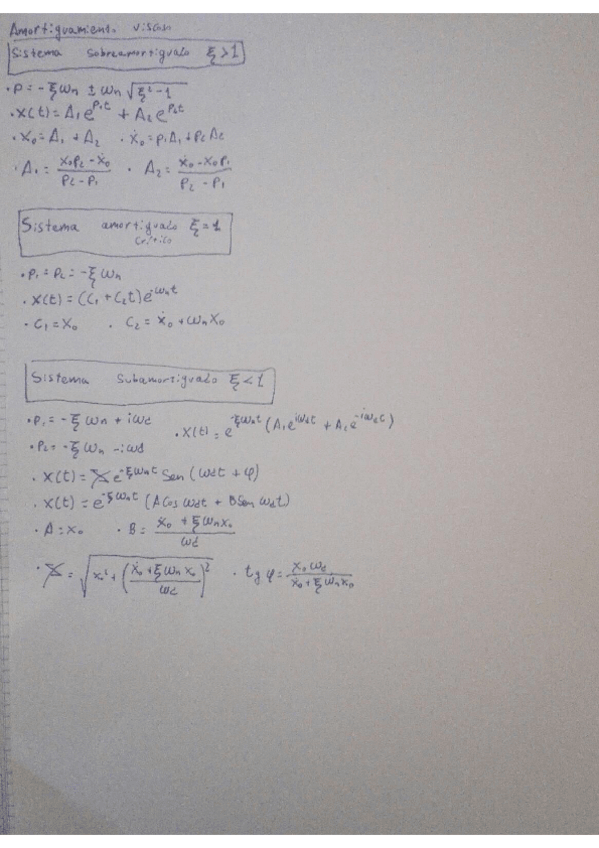 Amortiguamiento viscoso
Sistema sobreamortiguado ξ>1
• P = -ξωn ± ωn √(ξ²-1)
• X(t) = A₁e^(P₁t) + A₂e^(P₂t)
• X₀ = A₁ + A₂ • Ẋ₀ = P₁A₁ + P₂A₂
• A₁ = (X₀P₂ - Ẋ₀)/(P₂ - P₁) • A₂ = (Ẋ₀ - X₀P₁)/(P₂ - P₁)
Sistema amortiguado ξ=1
crítico
• P₁ = P₂ = -ξωn
• X(t) = (C₁ + C₂t)e^(-ωnt)
• C₁ = X₀ • C₂ = Ẋ₀ + ωnX₀
Sistema subamortiguado ξ<1
• P₁ = -ξωn + iωd
• X(t) = e^(-ξωnt) (A₁e^(iωdt) + A₁e^(-iωdt))
• P₂ = -ξωn - iωd
• X(t) = X e^(-ξωnt) Sen (ωdt + φ)
• X(t) = e^(-ξωnt) (A Cos ωdt + B Sen ωdt)
• A = X₀ • B = (Ẋ₀ + ξωnX₀)/ωd
• X = √(X₀² + ((Ẋ₀ + ξωnX₀)/ωd)²) • tg φ = X₀ωd/(Ẋ₀ + ξωnX₀)